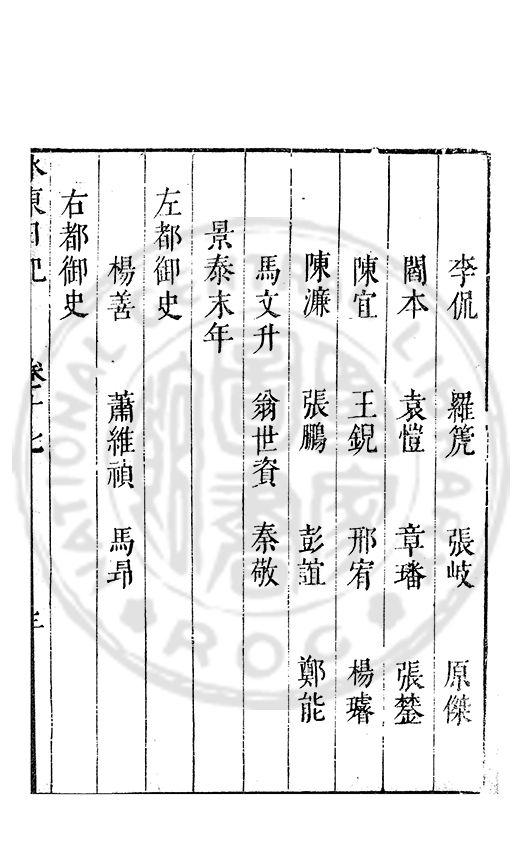 李侃　羅箎　張岐　原傑
閻本　袁愷　章璠　張鎣
陳宜　王鋭　邢宥　楊璿
陳濂　張鵬　彭誼　鄭能
馬文升　翁世資　秦敬
景泰末年
左都御史
楊善　蕭維禎　馬昂
右都御史
水東日記　卷十七　三